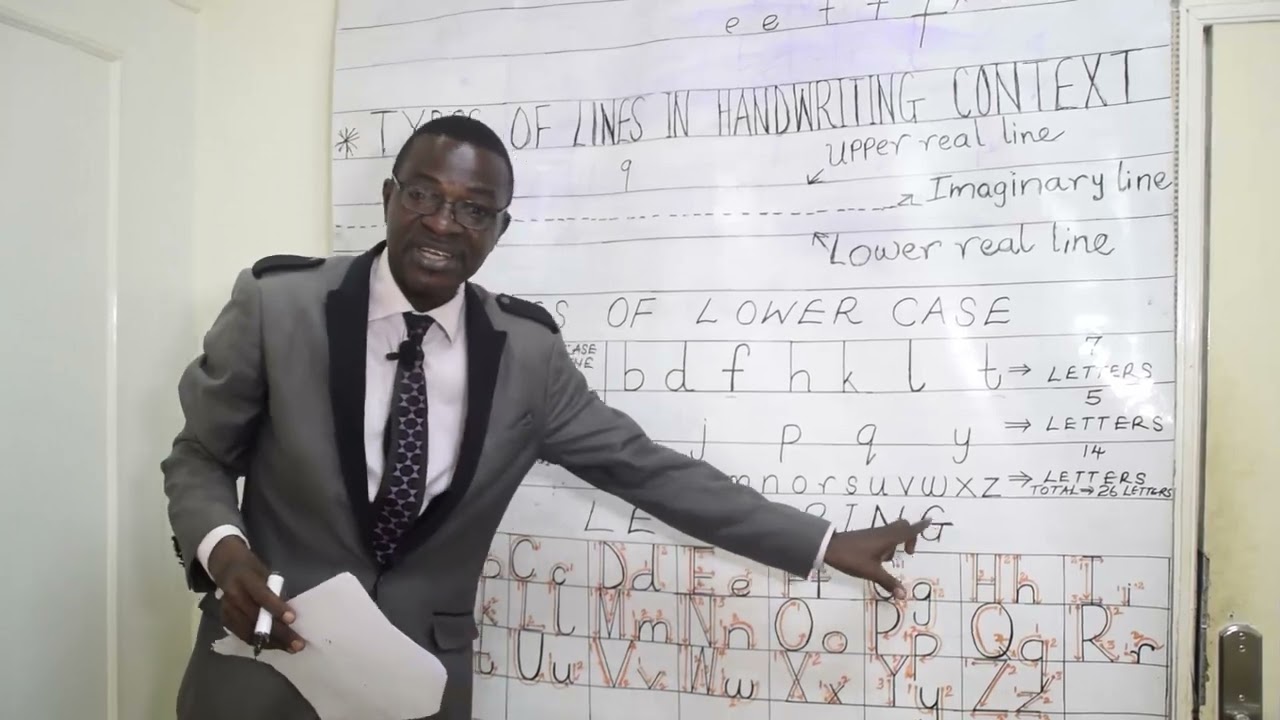 e e t t f
* TYPES OF LINES IN HANDWRITING CONTEXT
9
Upper real line
Imaginary line
Lower real line
OF LOWER CASE
b d f h k l t ⇒ 7 LETTERS
j p q y ⇒ 5 LETTERS
n o r s u v w x z ⇒ 14 LETTERS
TOTAL ⇒ 26 LETTERS
C c D d E e F f g H h I i
L l M m N n O o P p Q q R r
U u V v W w X x Y y Z z